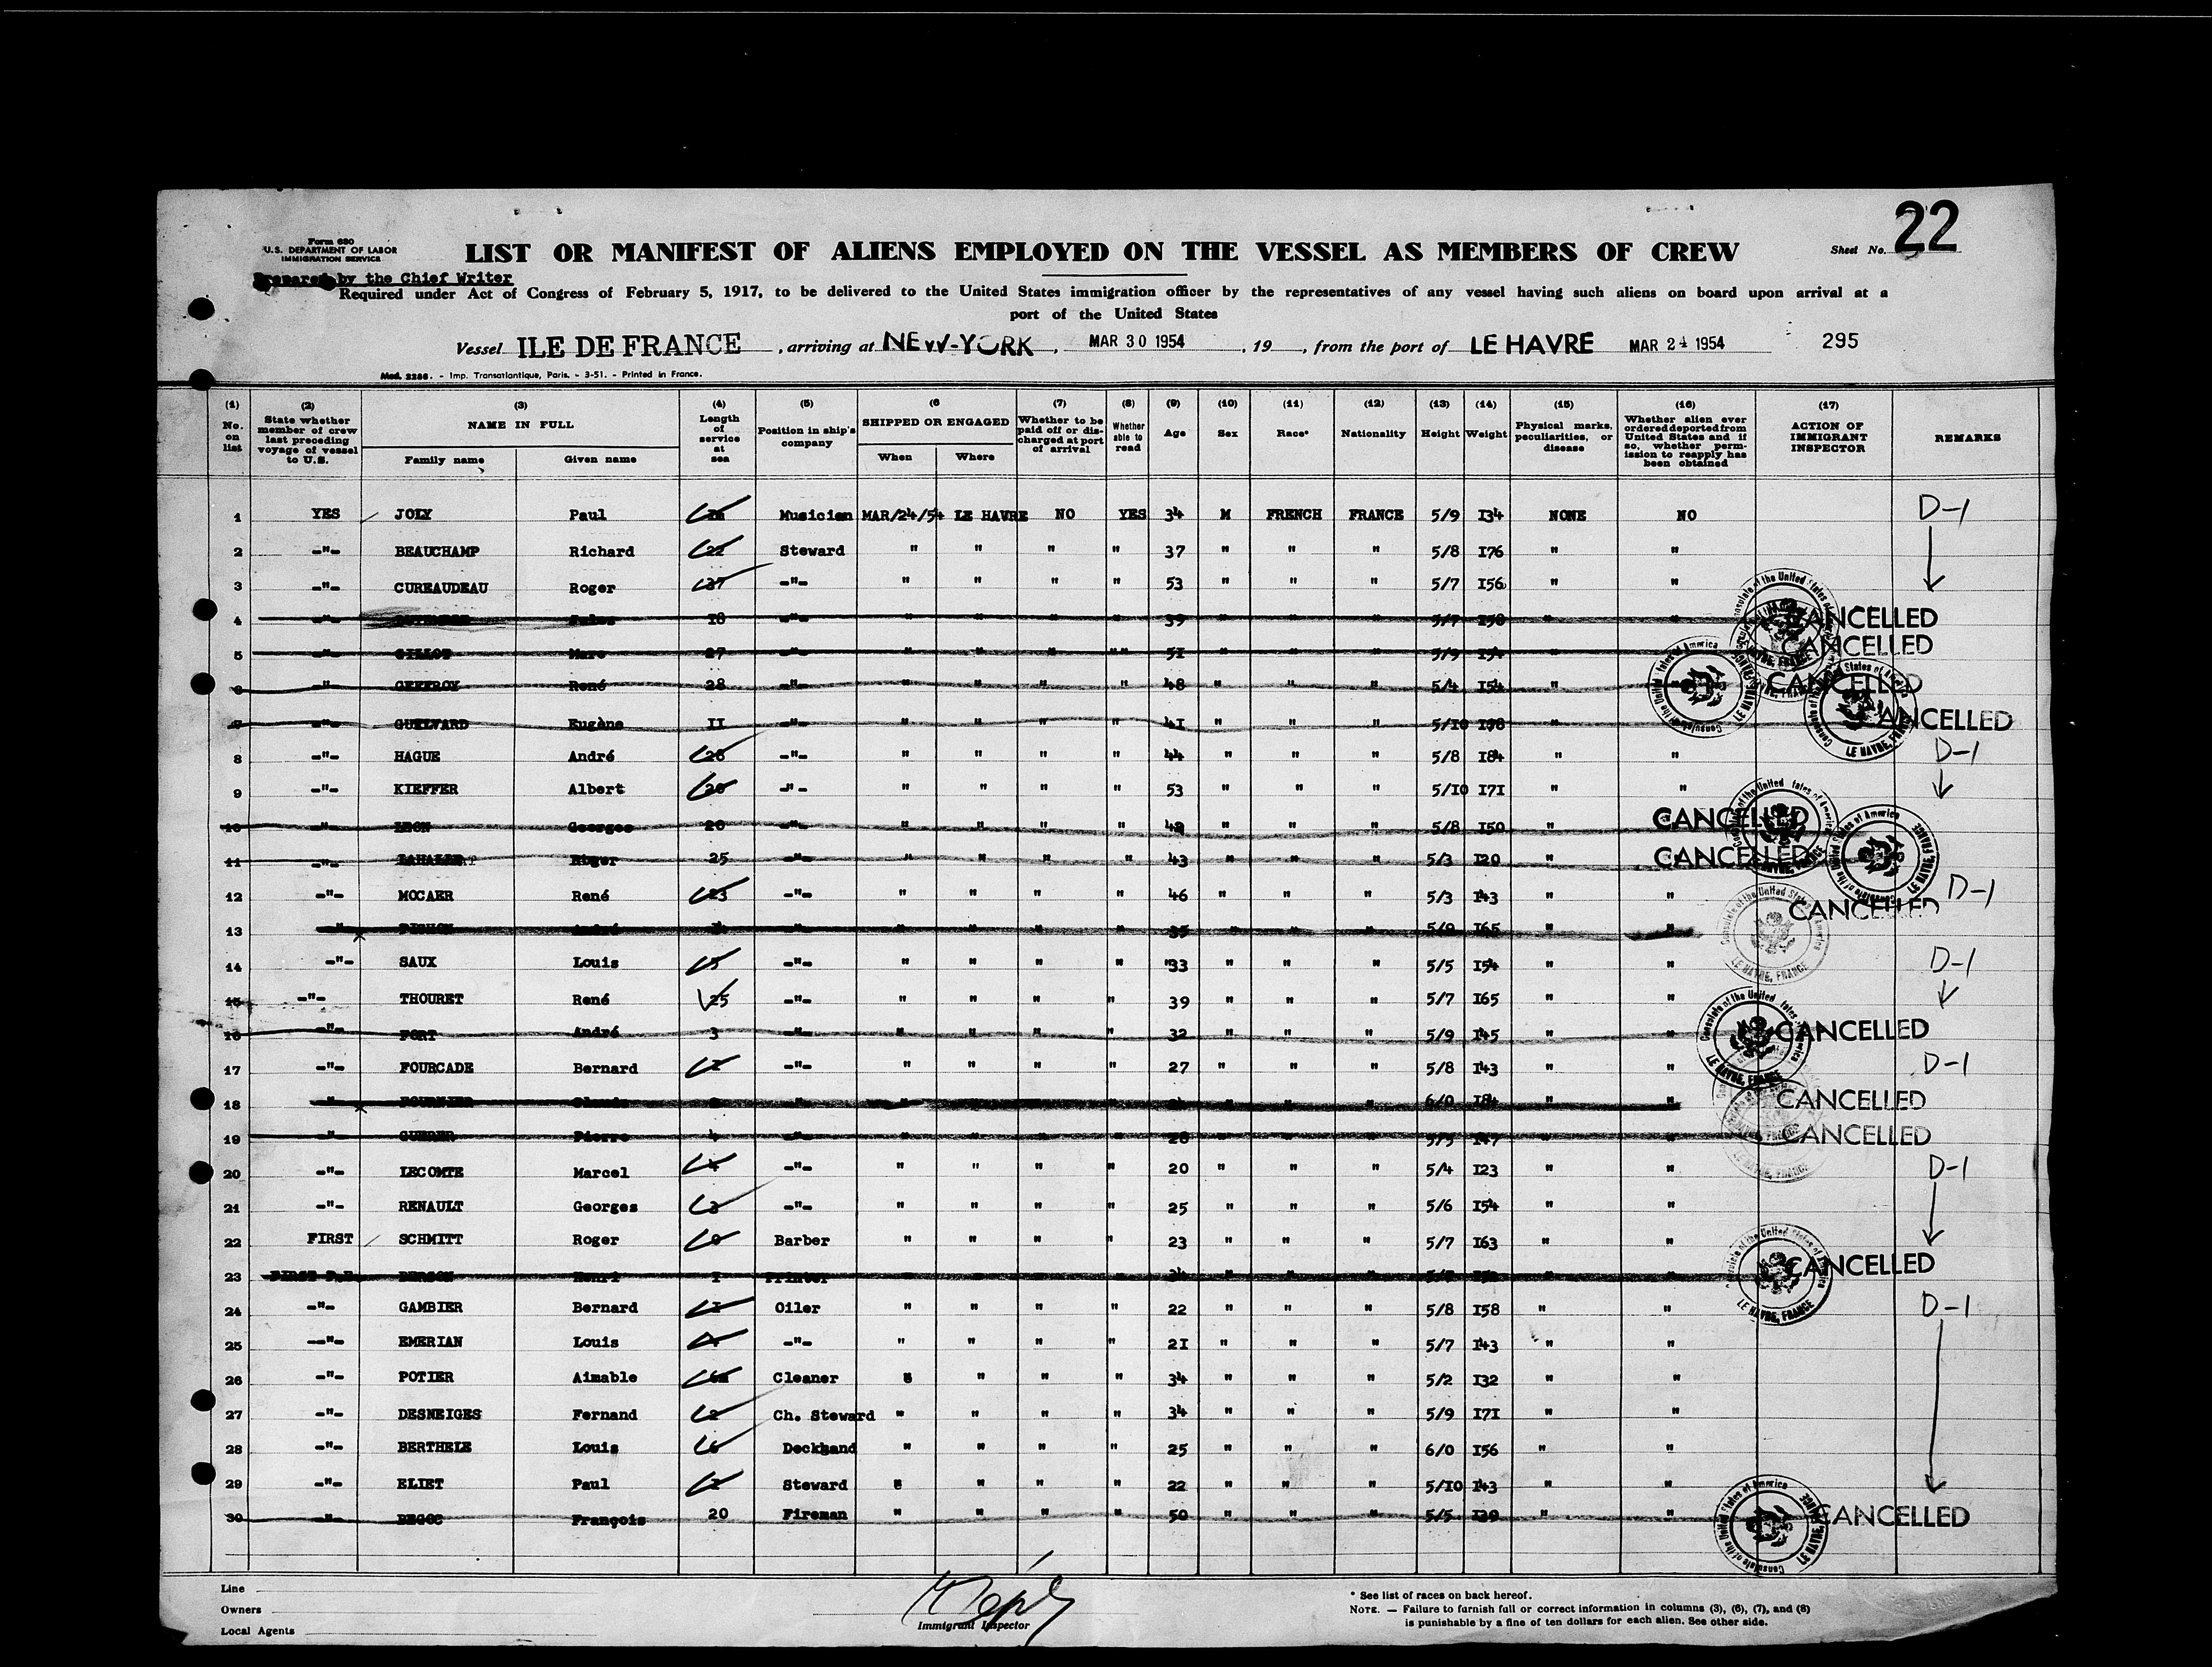 22
Form 680
U.S. DEPARTMENT OF LABOR
IMMIGRATION SERVICE
LIST OR MANIFEST OF ALIENS EMPLOYED ON THE VESSEL AS MEMBERS OF CREW
Sheet No.
Prepared by the Chief Writer
Required under Act of Congress of February 5, 1917, to be delivered to the United States immigration officer by the representatives of any vessel having such aliens on board upon arrival at a
port of the United States
Vessel ILE DE FRANCE , arriving at NEW-YORK , MAR 30 1954 , 19 , from the port of LE HAVRE MAR 24 1954 295
Mod. 2286. - Imp. Transatlantique, Paris. - 3-51. - Printed in France.
(1) No. on list
(2) State whether member of crew last preceding voyage of vessel to U.S.
(3) NAME IN FULL Family name Given name
(4) Length of service at sea
(5) Position in ship's company
(6 SHIPPED OR ENGAGED When Where
(7) Whether to be paid off or discharged at port of arrival
(8) Whether able to read
(9) Age
(10) Sex
(11) Race*
(12) Nationality
(13) Height
(14) Weight
(15) Physical marks, peculiarities, or disease
(16) Whether alien ever ordered deported from United States and if so, whether permission to reapply has been obtained
(17) ACTION OF IMMIGRANT INSPECTOR
REMARKS
1 YES JOLY Paul Musician MAR/24/54 LE HAVRE NO YES 34 M FRENCH FRANCE 5/9 134 NONE NO D-1
2 -"- BEAUCHAMP Richard 22 Steward " " " " 37 " " " 5/8 176 " "
3 -"- CUREAUDEAU Roger 37 -"- " " " " 53 " " " 5/7 156 " "
4 -"- 18 -"- " " " " 39 " " " 5/7 158 " " CANCELLED
5 -"- GILLOT Marc 27 -"- " " " "" 51 " " " 5/9 154 " " CANCELLED
6 -"- GEFFROY René 28 -"- " " " " 48 " " " 5/4 154 " CANCELLED
7 -"- GUELVARD Eugène 11 -"- " " " " 41 " " " 5/10 198 " CANCELLED
8 -"- HAGUE André 26 -"- " " " " 44 " " " 5/8 184 " " D-1
9 -"- KIEFFER Albert -"- " " " " 53 " " " 5/10 171 " "
10 -"- LEON Georges 20 -"- " " " " 42 " " " 5/8 150 " CANCELLED
11 -"- Roger 25 -"- " " " " 43 " " " 5/3 120 " CANCELLED
12 -"- MOCAER René 23 -"- " " " " 46 " " " 5/3 143 " " D-1
13 " PICHON André " " " " 35 " " " 5/9 165 " " CANCELLED
14 -"- SAUX Louis 5 -"- " " " " "33 " " " 5/5 154 " " D-1
15 -"- THOURET René 25 -"- " " " " 39 " " " 5/7 165 " "
16 -"- FORT André 3 -"- " " " " 32 " " " 5/9 145 " " CANCELLED
17 -"- FOURCADE Bernard -"- " " " " 27 " " " 5/8 143 " " D-1
18 " FOURNIER " " " " " " " 6/0 184 " " CANCELLED
19 -"- GUERER Pierre 4 -"- " " " " 28 " " " 5/5 147 " " CANCELLED
20 -"- LECOMTE Marcel 4 -"- " " " " 20 " " " 5/4 123 " " D-1
21 -"- RENAULT Georges 3 -"- " " " " 25 " " " 5/6 154 " "
22 FIRST SCHMITT Roger 0 Barber " " " " 23 " " " 5/7 163 " "
23 Henri 1 Printer " " " " 34 " " " " " CANCELLED
24 -"- GAMBIER Bernard 1 Oiler " " " " 22 " " " 5/8 158 " " D-1
25 -"- EMERIAN Louis -"- " " " " 21 " " " 5/7 143 " "
26 -"- POTIER Aimable Cleaner " " " " 34 " " " 5/2 132 " "
27 -"- DESNEIGES Fernand 2 Ch. Steward " " " " 34 " " " 5/9 171 " "
28 -"- BERTHELE Louis 6 Deckhand " " " " 25 " " " 6/0 156 " "
29 -"- ELIET Paul Steward " " " " 22 " " " 5/10 143 " "
30 " BEGOC François 20 Fireman " " " " 50 " " " 5/5 139 " " CANCELLED
Consulate of the United States of America
LE HAVRE, FRANCE
Line
Owners
Local Agents
Immigrant Inspector
* See list of races on back hereof.
NOTE. — Failure to furnish full or correct information in columns (3), (6), (7), and (8)
is punishable by a fine of ten dollars for each alien. See other side.